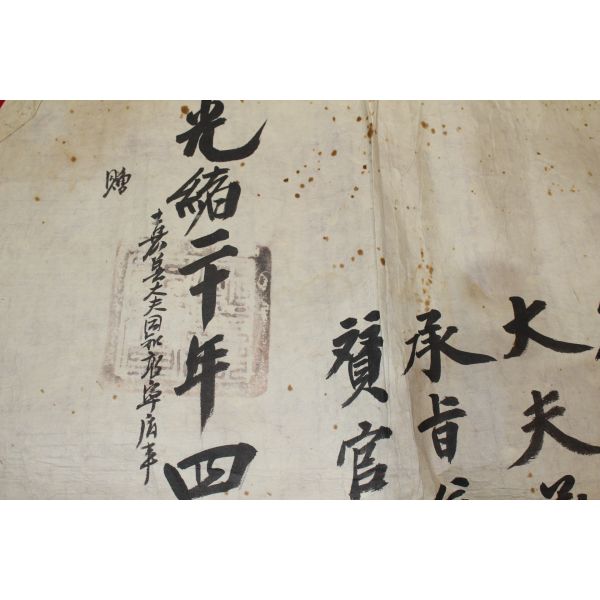 大夫
承旨
贊官
光緒二十年四
嘉善大夫同知敦寧府事
贈